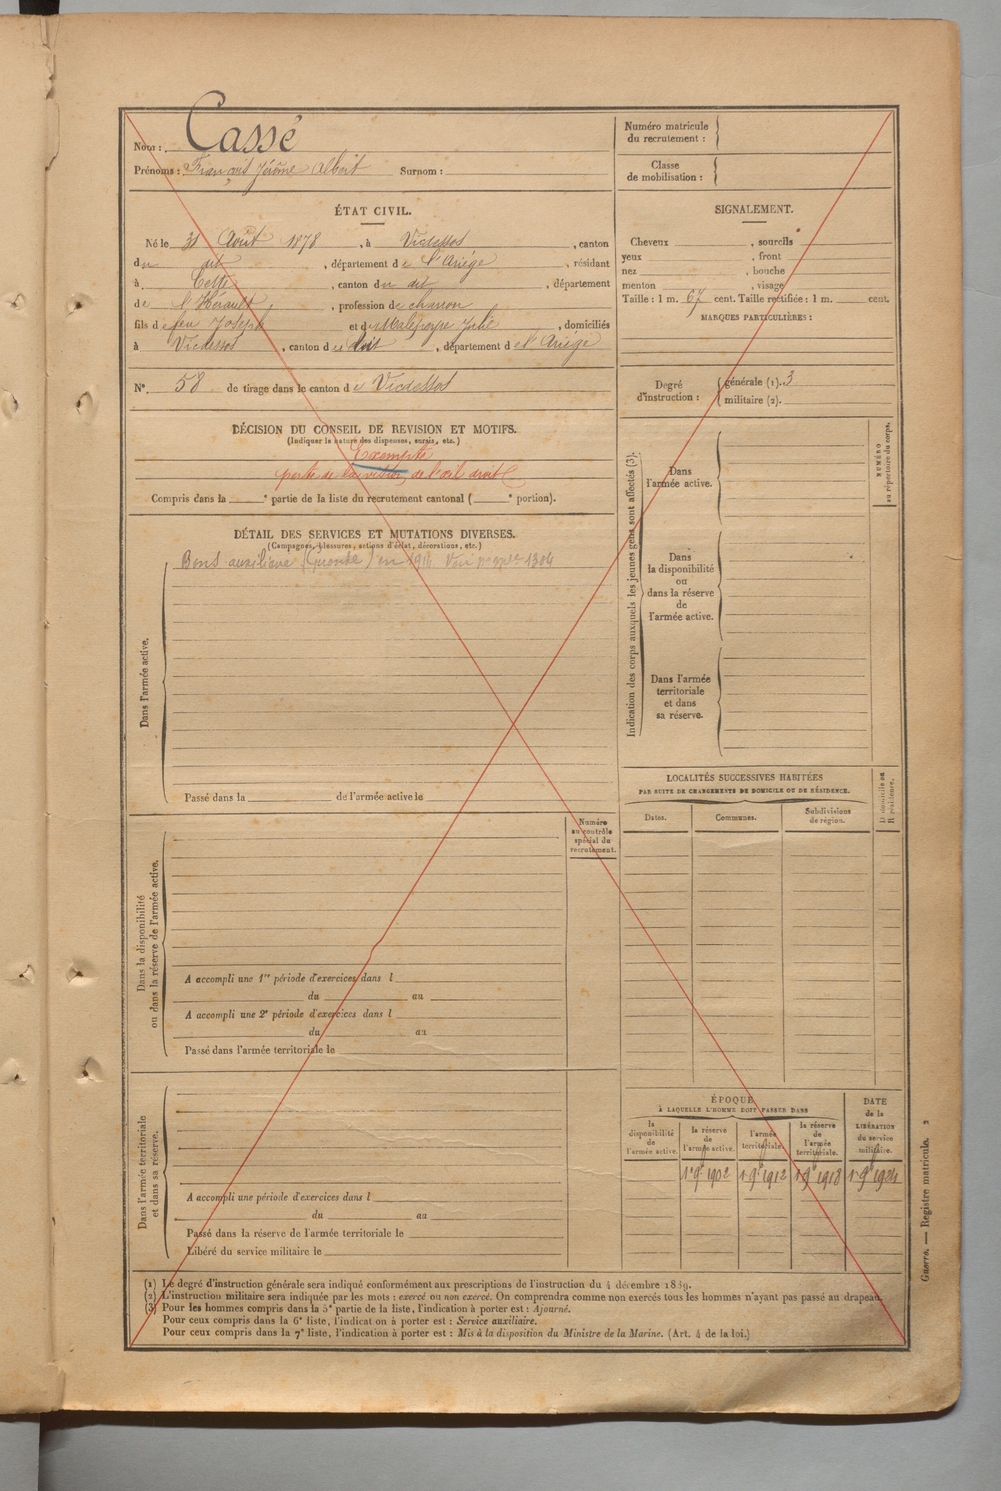 Nom : Cassé
Prénoms : François Jérôme Albert Surnom :
Numéro matricule du recrutement :
Classe de mobilisation :
ÉTAT CIVIL.
Né le 31 Août 1878, à Vicdessos, canton
du dit, département de l'Ariège, résidant
à Cette, canton du dit, département
de l'Hérault, profession de charron
fils de feu Joseph et de Malefosse Julie, domiciliés
à Vicdessos, canton du dit, département de l'Ariège
N° 58 de tirage dans le canton de Vicdessos
DÉCISION DU CONSEIL DE REVISION ET MOTIFS.
(Indiquer la nature des dispenses, sursis, etc.)
Exempté
perte de la vision de l'œil droit
Compris dans la e partie de la liste du recrutement cantonal ( e portion).
DÉTAIL DES SERVICES ET MUTATIONS DIVERSES.
(Campagnes, blessures, actions d'éclat, décorations, etc.)
Bons auxiliaire en 1914 Voir 1304
Dans l'armée active.
Passé dans la de l'armée active le
Numéro au contrôle spécial du recrutement.
Dans la disponibilité
ou dans la réserve de l'armée active.
A accompli une 1re période d'exercices dans l
du au
A accompli une 2e période d'exercices dans l
du au
Passé dans l'armée territoriale le
Dans l'armée territoriale
et dans sa réserve.
A accompli une période d'exercices dans l
du au
Passé dans la réserve de l'armée territoriale le
Libéré du service militaire le
SIGNALEMENT.
Cheveux , sourcils
yeux , front
nez , bouche
menton , visage
Taille : 1 m. 67 cent. Taille rectifiée : 1 m. cent.
MARQUES PARTICULIÈRES :
Degré d'instruction :
générale (1). 3
militaire (2).
Indication des corps auxquels les jeunes gens sont affectés (3).
NUMÉRO
au répertoire du corps.
Dans
l'armée active.
Dans
la disponibilité
ou
dans la réserve
de
l'armée active.
Dans l'armée
territoriale
et dans
sa réserve.
LOCALITÉS SUCCESSIVES HABITÉES
PAR SUITE DE CHANGEMENTS DE DOMICILE OU DE RÉSIDENCE.
Dates.
Communes.
Subdivisions de région.
D domicile ou
R résidence.
ÉPOQUE
À LAQUELLE L'HOMME DOIT PASSER DANS
la disponibilité de l'armée active.
la réserve de l'armée active.
l'armée territoriale.
la réserve de l'armée territoriale.
DATE de la LIBÉRATION du service militaire.
1 9bre 1902
1 9bre 1912
1 9bre 1918
1 9bre 1924
(1) Le degré d'instruction générale sera indiqué conformément aux prescriptions de l'instruction du 4 décembre 1889.
(2) L'instruction militaire sera indiquée par les mots : exercé ou non exercé. On comprendra comme non exercés tous les hommes n'ayant pas passé au drapeau.
(3) Pour les hommes compris dans la 5e partie de la liste, l'indication à porter est : Ajourné.
Pour ceux compris dans la 6e liste, l'indication à porter est : Service auxiliaire.
Pour ceux compris dans la 7e liste, l'indication à porter est : Mis à la disposition du Ministre de la Marine. (Art. 4 de la loi.)
Guerre. — Registre matricule. 2